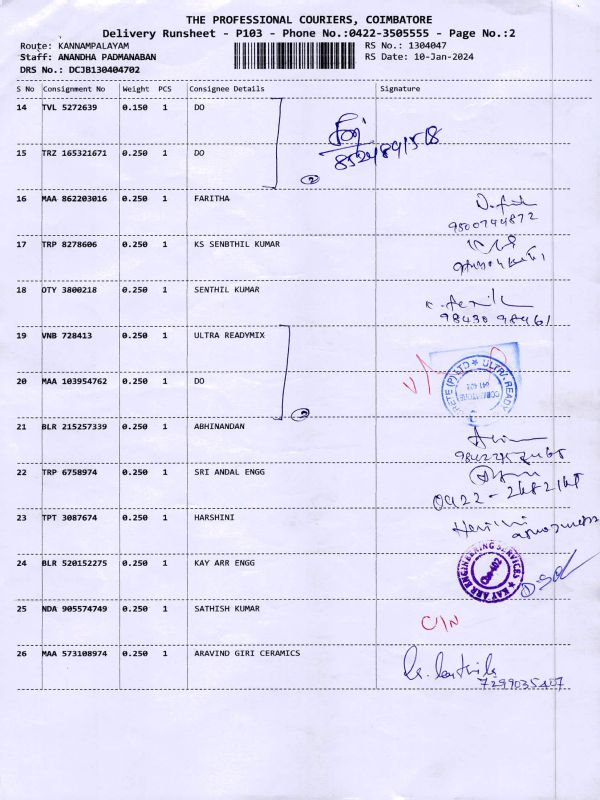 THE PROFESSIONAL COURIERS, COIMBATORE
Delivery Runsheet - P103 - Phone No.:0422-3505555 - Page No.:2
Route: KANNAMPALAYAM RS No.: 1304047
Staff: ANANDHA PADMANABAN RS Date: 10-Jan-2024
DRS No.: DCJB130404702
S No Consignment No Weight PCS Consignee Details Signature
14 TVL 5272639 0.150 1 DO
15 TRZ 165321671 0.250 1 DO
2
16 MAA 862203016 0.250 1 FARITHA
9500744872
17 TRP 8278606 0.250 1 KS SENBTHIL KUMAR
18 OTY 3800218 0.250 1 SENTHIL KUMAR
98430 98461
19 VNB 728413 0.250 1 ULTRA READYMIX
ULTRA READY
CRETE (P) LTD
COIMBATORE
641 402
20 MAA 103954762 0.250 1 DO
2
21 BLR 215257339 0.250 1 ABHINANDAN
22 TRP 6758974 0.250 1 SRI ANDAL ENGG
23 TPT 3087674 0.250 1 HARSHINI
24 BLR 520152275 0.250 1 KAY ARR ENGG
KAY ARR ENGINEERING SERVICES
25 NDA 905574749 0.250 1 SATHISH KUMAR
C/N
26 MAA 573108974 0.250 1 ARAVIND GIRI CERAMICS
7299035407